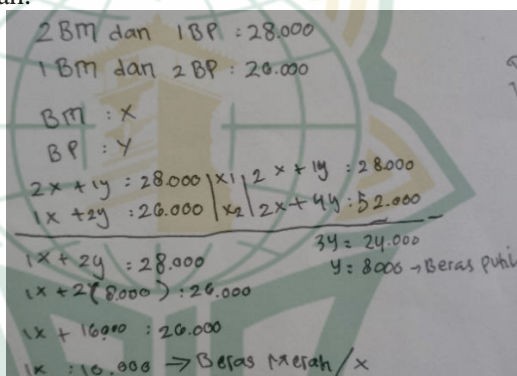 2 BM dan 1 BP : 28.000
1 BM dan 2 BP : 26.000
BM : X
BP : Y
2x + 1y : 28.000 | x1 | 2x + 1y : 28.000
1x + 2y : 26.000 | x2 | 2x + 4y : 52.000
3y = 24.000
1x + 2y : 28.000
y = 8000 → Beras Putih
1x + 2(8.000) : 26.000
1x + 16000 : 26.000
1x : 10.000 → Beras Merah / x